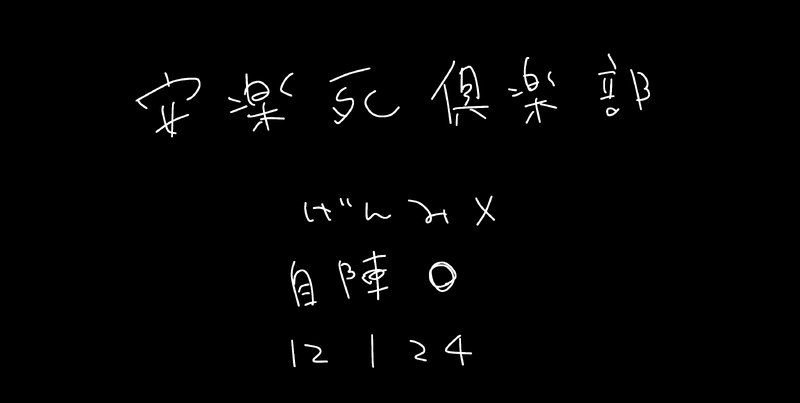 安楽死倶楽部
げんみ X
自陣 O
12 | 24